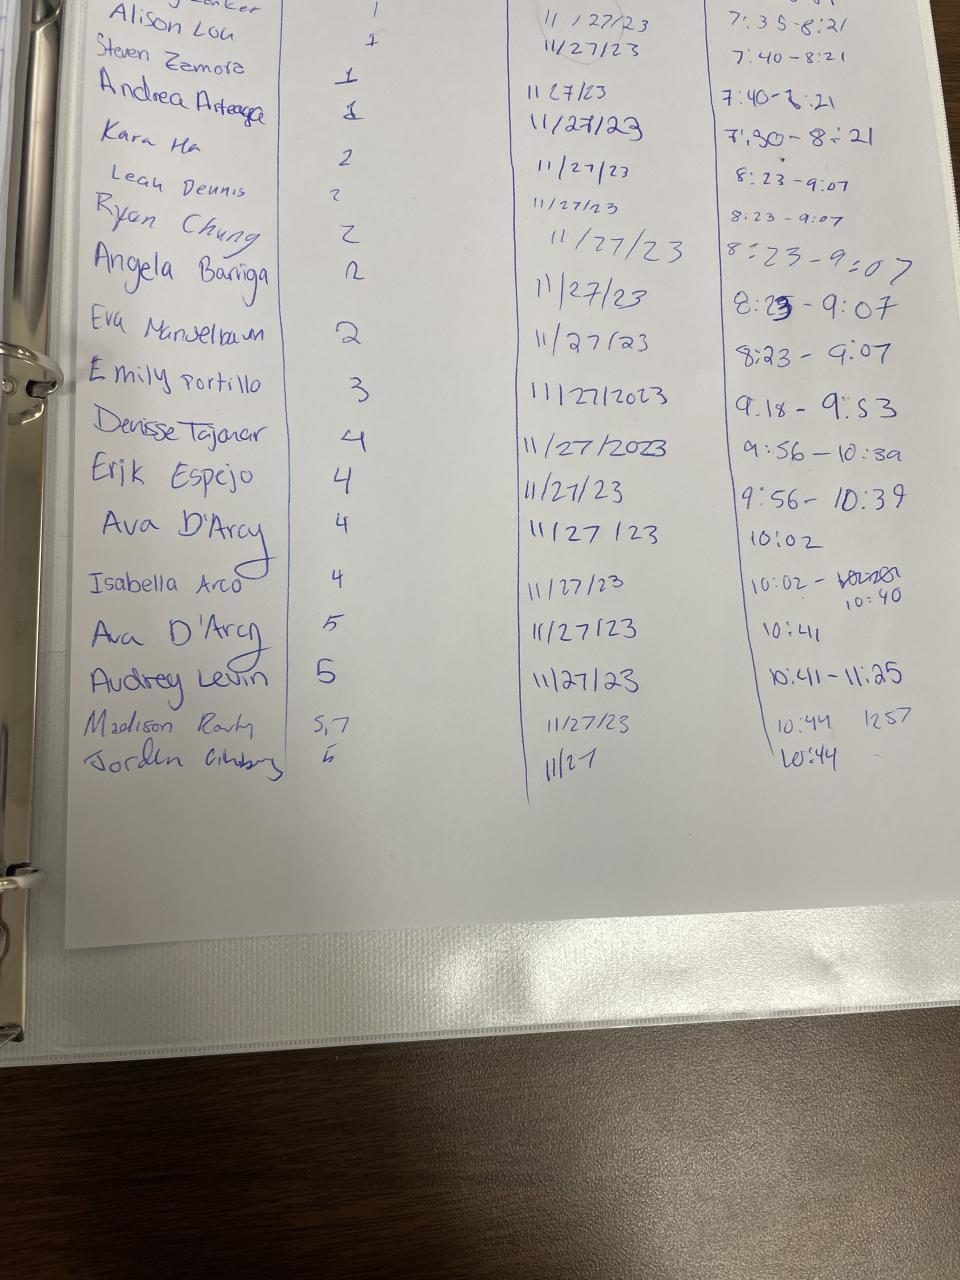 Alison Lou 1 11/27/23 7:35-8:21
Steven Zamora 1 11/27/23 7:40-8:21
Andrea Arteaga 1 11 27/23 7:40-8:21
Kara Ha 1 11/27/23 7:30-8:21
Leah Dennis 2 11/27/23 8:23-9:07
Ryan Chung 2 11/27/23 8:23-9:07
Angela Barriga 2 11/27/23 8:23-9:07
Eva 2 11/27/23 8:23-9:07
Emily Portillo 2 11/27/23 8:23-9:07
Denisse Tajonar 3 11/27/2023 9:18-9:53
Erik Espejo 4 11/27/2023 9:56-10:39
Ava D'Arcy 4 11/27/23 9:56-10:39
Isabella Arco 4 11/27/23 10:02
Ava D'Arcy 4 11/27/23 10:02- 10:40
Audrey Levin 5 11/27/23 10:41
Madison 5 11/27/23 10:41-11:25
Jorden 5,7 11/27/23 10:44 1257
5 11/27 10:44